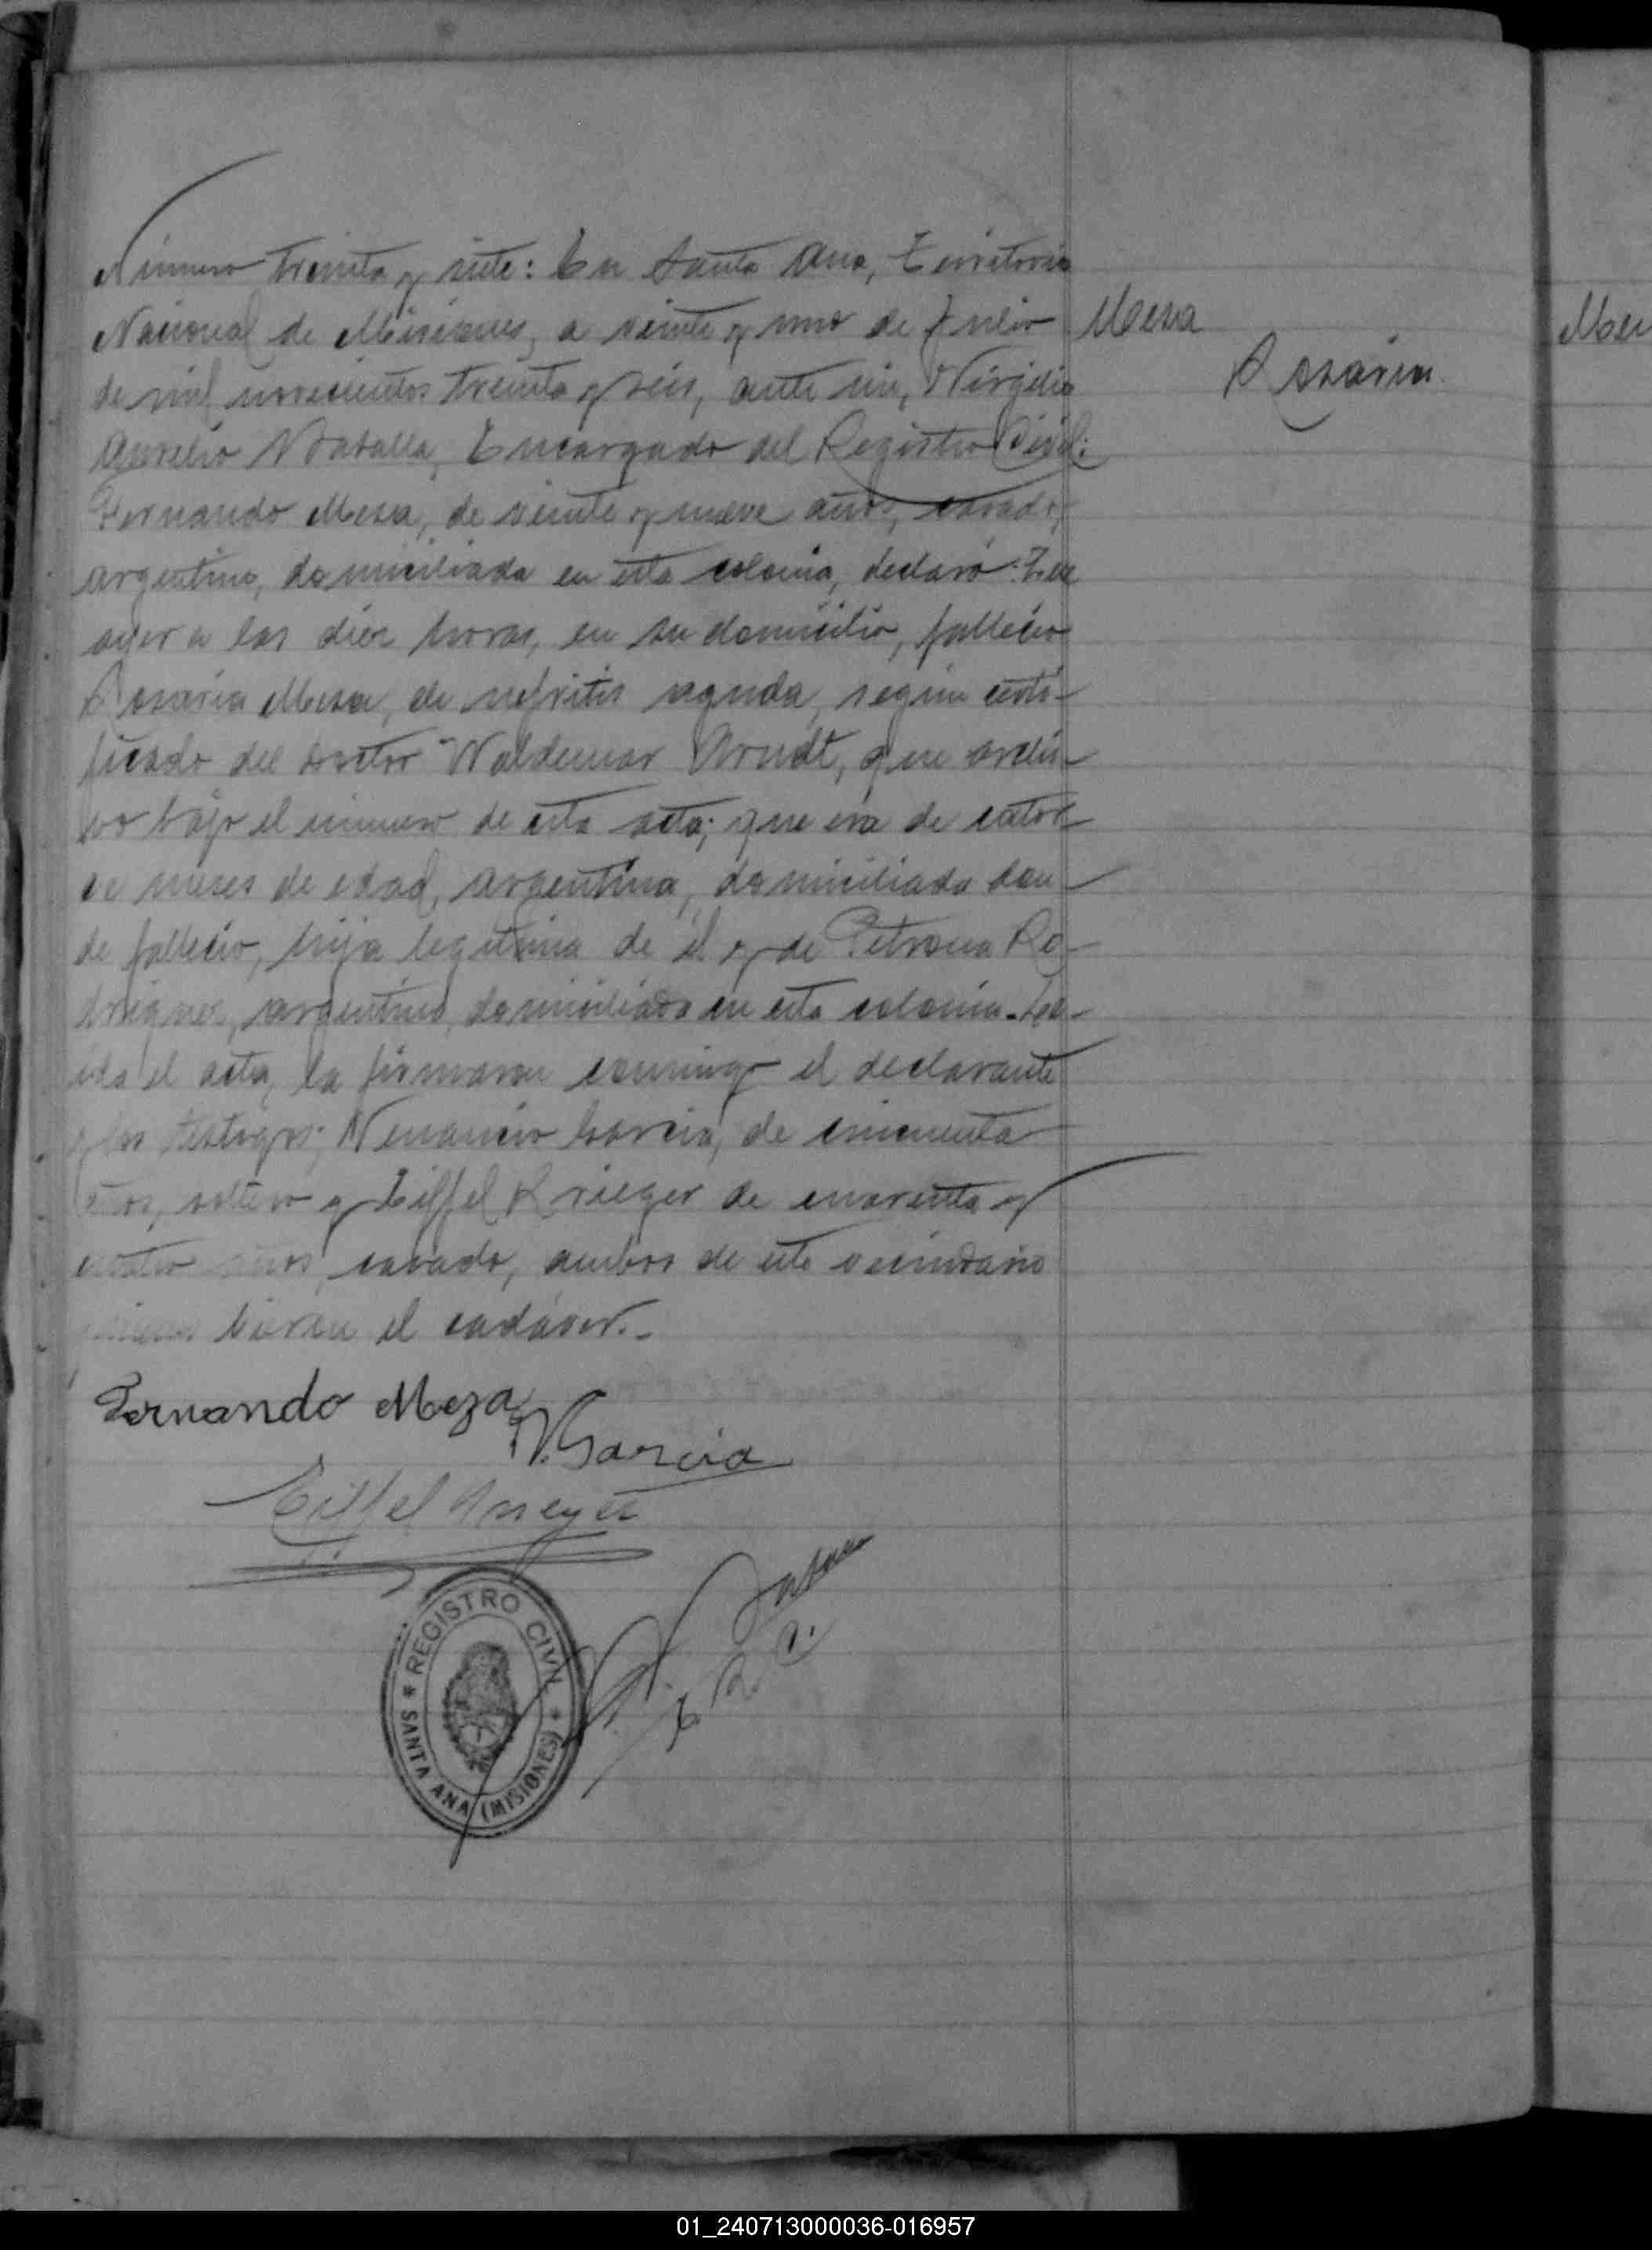 Número treinta y siete: En Santa Ana, Territorio
Nacional de Misiones, a veinte y uno de Julio
de mil novecientos treinta y seis, ante mi, Virgilio
Aurelio Encargado del Registro Civil:
Fernando Meza, de veinte y nueve años, casado,
argentino, domiciliado en esta colonia, declaró: Que
ayer a las diez horas, en su domicilio, falleció
Rosaria Meza, de nefritis aguda, según certi-
ficado del doctor Waldemar Arndt, que archi-
vo bajo el número de esta acta; que era de cator-
ce meses de edad, argentina, domiciliada don-
de falleció, hija legítima de él y de Petrona Ro-
driguez, argentina, domiciliada en esta colonia. Leí-
da el acta, la firmaron conmigo el declarante
y los testigos; Venancio Garcia, de cincuenta
años, soltero y Eiffel Krieger de cuarenta y
cuatro años, casado, ambos de este vecindario
quienes vieron el cadáver.-
Fernando Meza
V. Garcia
Eiffel Krieger
E R C.
* REGISTRO CIVIL * SANTA ANA (MISIONES)
Meza
Rosaria
01_240713000036-016957